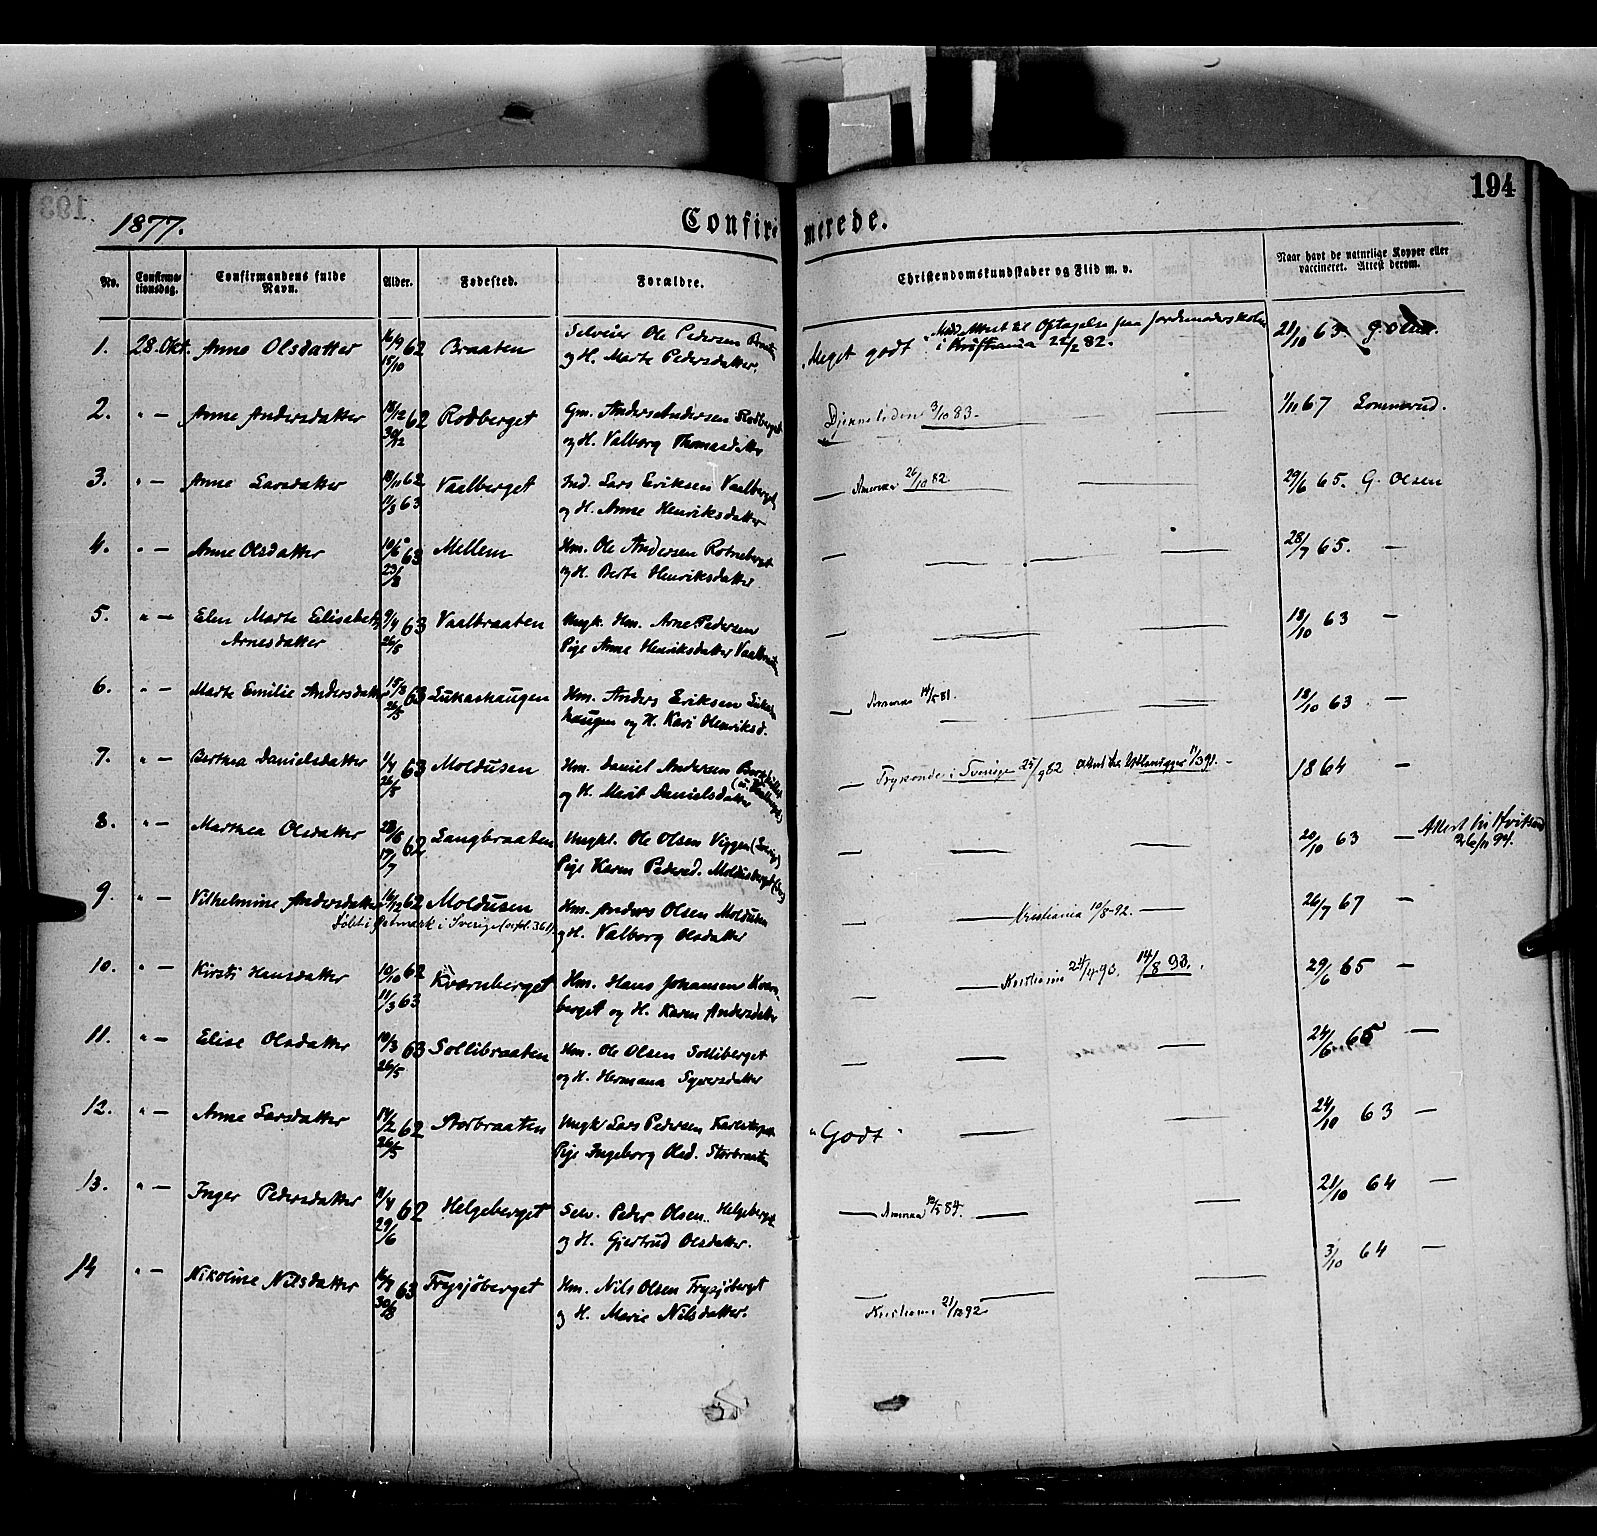 194
1877.
Confirmerede.
No.
Confirmationsdag.
Confirmandens fulde Navn.
Alder.
Fødested.
Forældre.
Christendomskundskaber og Flid m. v.
Naar havt de naturlige Kopper eller vaccineret. Attest derom.
1. 28. Okt. Anne Olsdatter 16/9 62 15/10 Braaten Selveier Ole Pedersen Braaten
og H. Marte Pedersdatter.
"Meget godt" Med Attest til Optagelse paa Jordemoderskolen
i Kristiania 22/2 82.
21/10 63 G. Olsen.
2. " — Anne Andersdatter 18/12 62 30/12 Rodberget Gm. Anders Andersen Rodberget
og H. Valborg Thomasdatter
3/10 83. — —
1/11 67 Lommerud.
3. " — Anne Larsdatter 18/11 62 11/3 63 Vaalberget Ind. Lars Eriksen Vaalberget
og H. Anne Henriksdatter
— Amerika 26/10 82 — —
29/6 65. G. Olsen
4. " — Anne Olsdatter 10/6 63 23/8 Mellem Hm. Ole Andersen Rotneberget
og H. Berte Henriksdatter
— — — —
28/7 65. —
5. " — Elen Marte Elisabeth 9/4 63 26/5 Vaalbraaten Ungk. Hm. Arne Pedersen
Arnesdatter Pige Anne Henriksdatter Vaalbraaten
— — — —
18/10 63 —
6. " — Marte Emilie Andersdatter 15/3 63 26/5 Lukashaugen Hm. Anders Eriksen Lukas
haugen og H. Kari Henriksd.
— Amerika 14/5 81. — — —
18/10 63 —
7. " — Berthea Danielsdatter 1/4 63 26/5 Moldusen Hm. Daniel Andersen
og H. Marit Danielsdatter
— Tryksende i Sverige 25/9 82 11/3 91. —
18 64 —
8. " — Marthea Olsdatter 28/6 62 17/7 Langbraaten Ungkl. Ole Olsen Viggen (Sverig)
Pige Karen Pedersd. Moldusberget
— — —
20/10 63 — Attest til
26/11 94.
9. " — Vilhelmine Andersdatter 16/12 62 Moldusen Hm. Anders Olsen Moldusen
og H. Valborg Olsdatter
— — Kristiania 10/8 92. —
26/7 67 —
10. " — Kirsti Hansdatter 10/10 62 11/3 63 Kværnberget Hm. Hans Johansen Kværn-
berget og H. Karen Andersdatter
— — Kristiania 24/4 93. 14/8 93.
29/6 65 —
11. " — Elise Olsdatter 10/3 63 26/5 Sollibraaten Hm. Ole Olsen Solliberget
og H. Hermana Syversdatter
— — —
24/6 65 —
12. " — Anne Larsdatter 14/2 62 26/5 Storbraaten Ungk Lars Pedersen
Pige Ingeborg Olsd. Storbraaten
"Godt" — —
24/10 63 —
13. " — Inger Pedersdatter 11/4 62 29/6 Helgeberget Selv. Peder Olsen Helgeberget
og H. Gjertrud Olsdatter.
— Amerika 12/5 84. — —
21/10 64 —
14 " — Nikoline Nilsdatter 14/7 63 30/8 Frysjöberget Hm. Nils Olsen Frysjöberget
og H. Marie Nilsdatter.
— Kristiania 21/12 92 — —
3/10 64 —